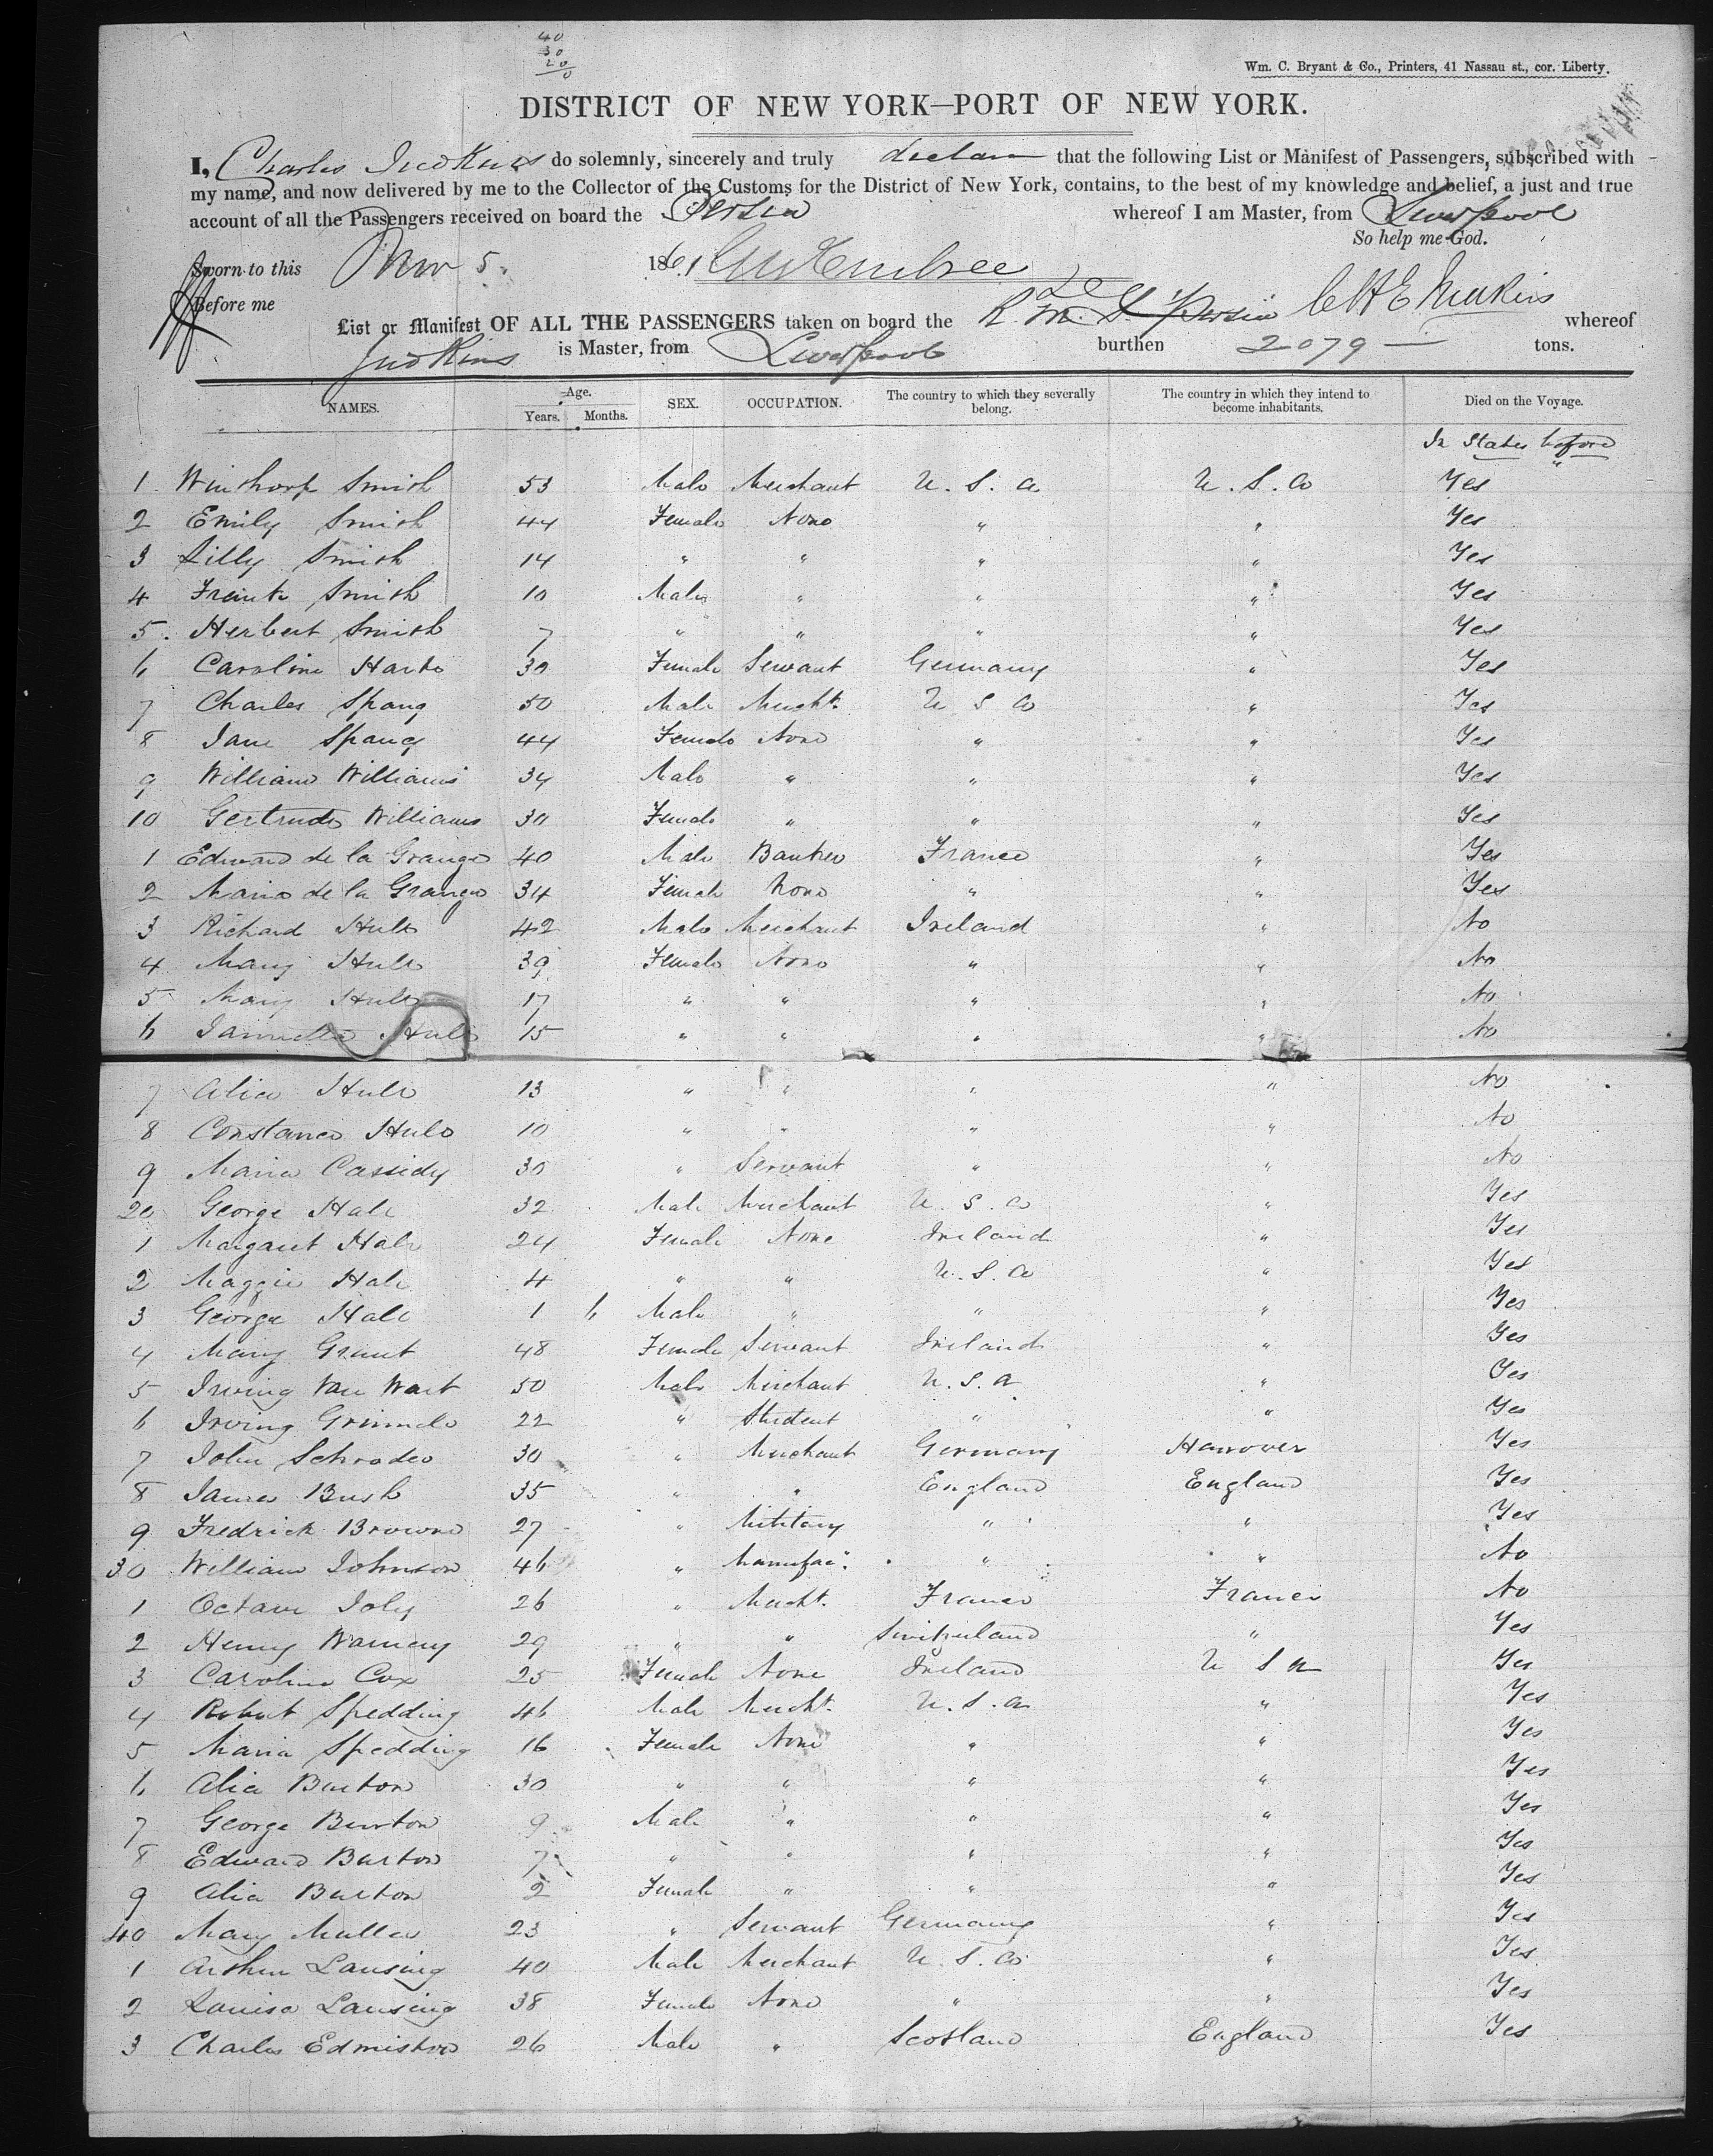 40
30
20
0
Wm. C. Bryant & Co., Printers, 41 Nassau st., cor. Liberty.
DISTRICT OF NEW YORK—PORT OF NEW YORK.
I, Charles Judkins do solemnly, sincerely and truly declare that the following List or Manifest of Passengers, subscribed with
my name, and now delivered by me to the Collector of the Customs for the District of New York, contains, to the best of my knowledge and belief, a just and true
account of all the Passengers received on board the Persia whereof I am Master, from Liverpool
So help me God.
Sworn to this Nov 5. 1861
Before me
List or Manifest OF ALL THE PASSENGERS taken on board the R. M. S. Persia whereof
Judkins is Master, from Liverpool burthen 2079 — tons.
NAMES. Age. Years. Months. SEX. OCCUPATION. The country to which they severally belong. The country in which they intend to become inhabitants. Died on the Voyage.
In States before
1 Winthorp Smith 53 Male Merchant U. S. A U. S. A Yes
2 Emily Smith 44 Female None " " Yes
3 Lilly Smith 14 " " " " Yes
4 Frank Smith 10 Male " " " Yes
5. Herbert Smith 7 " " " " Yes
6 Caroline 30 Female Servant Germany " Yes
7 Charles Spang 50 Male Mercht. U S A " Yes
8 Jane Spang 44 Female None " " Yes
9 William Williams 34 Male " " " Yes
10 Gertrude Williams 30 Female " " " Yes
1 Edward de la Grange 40 Male Banker France " Yes
2 Maria de la Grange 34 Female None " " Yes
3 Richard Hull 42 Male Merchant Ireland " No
4 Mary Hull 39 Female None " " No
5 Mary Hull 17 " " " " No
6 Hull 15 " " " " No
7 Alice Hull 13 " " " " No
8 Constance Hull 10 " " " " No
9 Maria Cassidy 30 " Servant " " No
20 George Hale 32 Male Merchant U. S. A " Yes
1 Margaret Hale 24 Female None Ireland " Yes
2 Maggie Hale 4 " " U. S. A " Yes
3 George Hale 1 6 Male " " " Yes
4 Mary Grant 48 Female Servant Ireland " Yes
5 Irving Van Wart 50 Male Merchant U. S. A " Yes
6 Irving 22 " Student " " Yes
7 John Schroder 30 " Merchant Germany Hanover Yes
8 James Bush 35 " " England England Yes
9 Fredrick Browne 27 " Military " " Yes
30 William Johnson 46 " Manufac". " " No
1 Octave Joly 26 " Mercht. France France No
2 Henry Wamery 29 " " Switzerland " Yes
3 Caroline Cox 25 Female None Ireland U S A Yes
4 Robert Spedding 46 Male Mercht. U. S. A " Yes
5 Maria Spedding 16 Female None " " Yes
6 Alice Burton 30 " " " " Yes
7 George Burton 9 Male " " " Yes
8 Edward Burton 7 " " " " Yes
9 Alice Burton 2 Female " " " Yes
40 Mary Muller 23 " Servant Germany " Yes
1 Arthur Lansing 40 Male Merchant U. S. A " Yes
2 Louisa Lansing 38 Female None " " Yes
3 Charles Edmiston 26 Male " Scotland England Yes